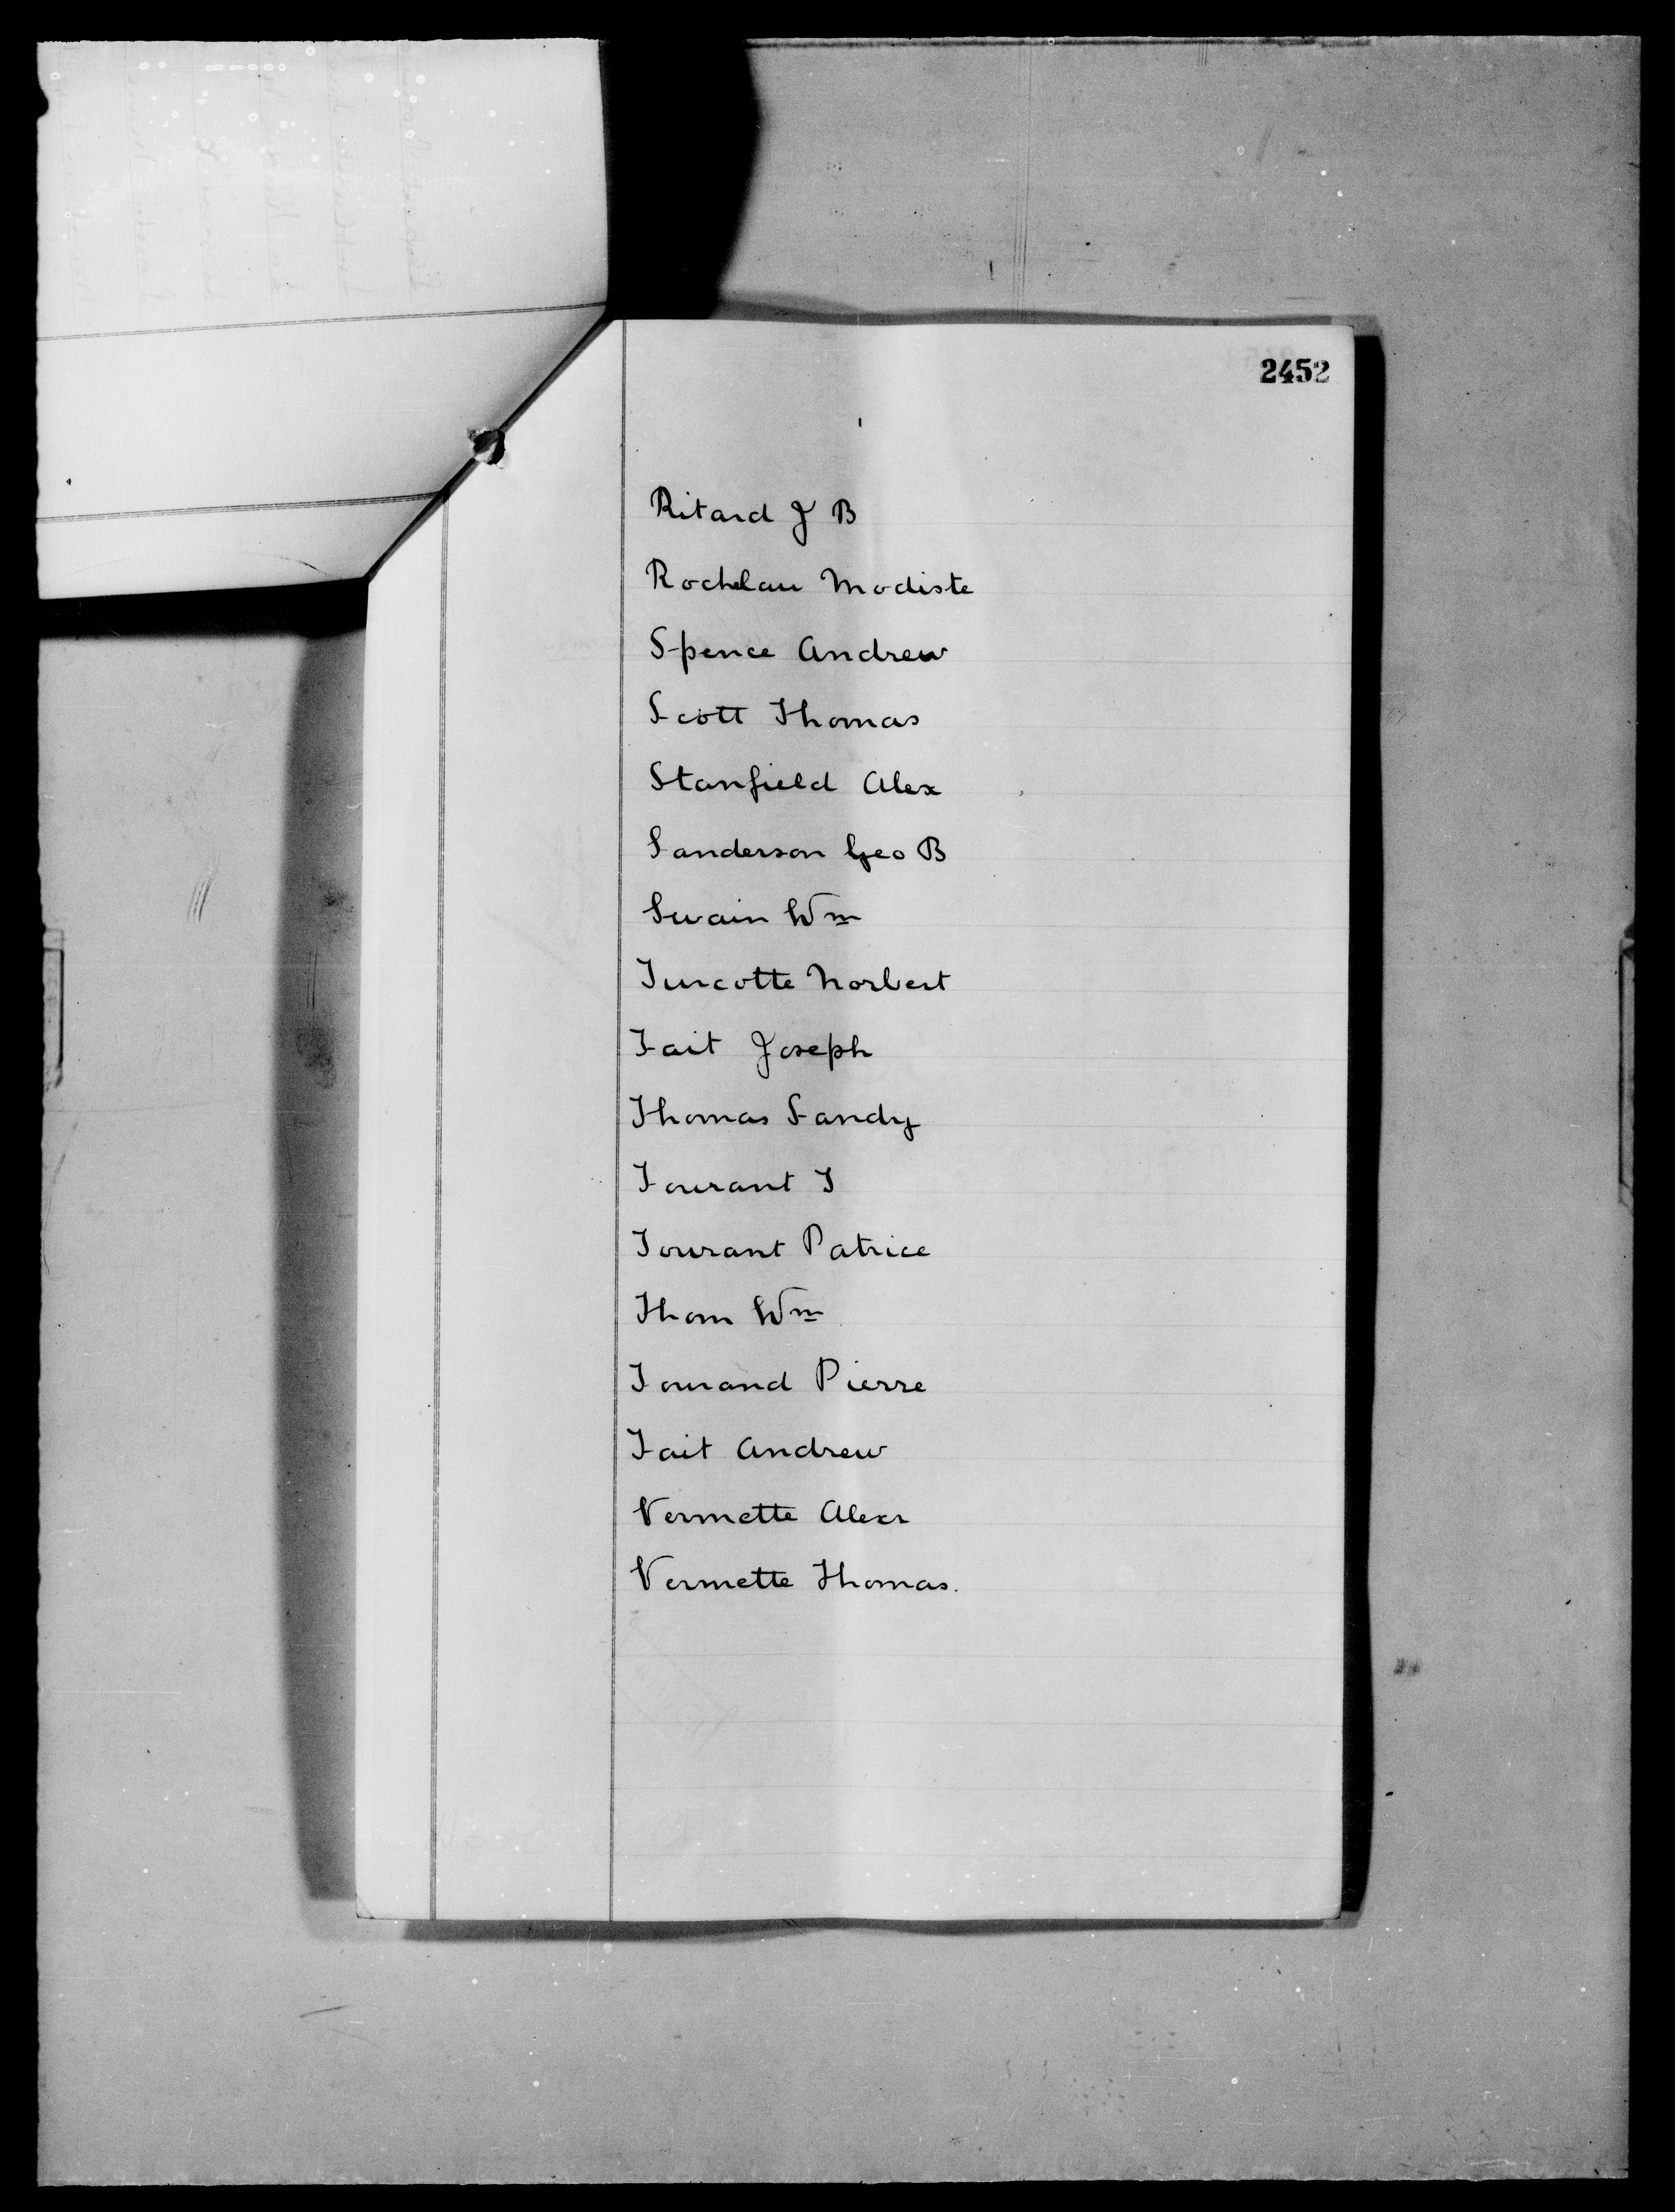 2452
Ritard J B
Rochelau Modiste
Spence Andrew
Scott Thomas
Stanfield Alex
Sanderson Geo B
Swain Wm
Turcotte Norbert
Tait Joseph
Thomas Sandy
Tourant T
Tourant Patrice
Thom Wm
Tourand Pierre
Tait Andrew
Vermette Alexr
Vermette Thomas.